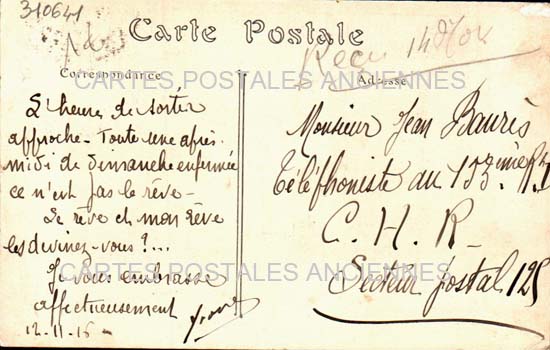 310641
Carte Postale
Reçu 14 Nov
Correspondance
Adresse
CARTES POSTALES ANCIENNES
L'heure de sortir
approche - Toute une après-
midi de dimanche enfermée
ce n'est pas le rêve -
Le rêve et mon rêve
les devinez-vous ?...
Je vous embrasse
affectueusement
12-11-16
Monsieur Jean Baurès
Téléphoniste au 153ième R.I
C. H. R -
Secteur postal 125
CARTES POSTALES ANCIENNES